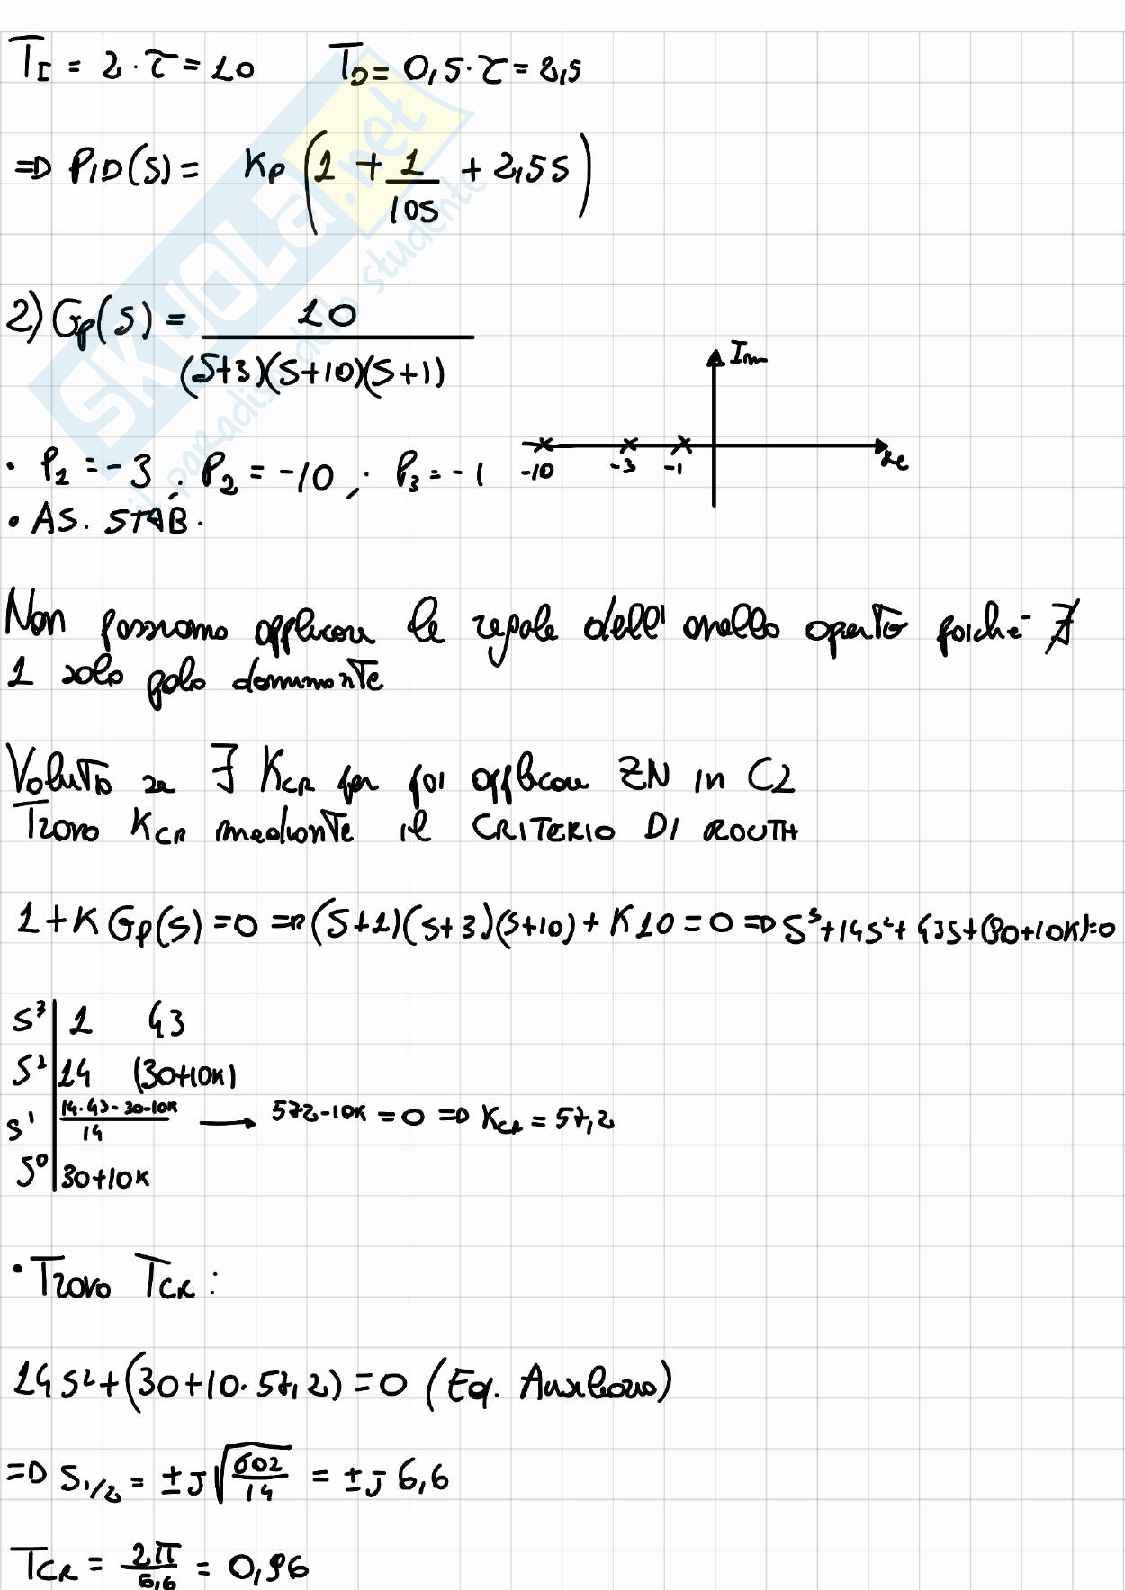 T_I = 2 · τ = 10 T_D = 0,5 · τ = 2,5
=D PID(S) = Kp (1 + 1/10S + 2,5S)
2) Gp(S) = 10 / (S+3)(S+10)(S+1)
Im
Re
-10 -3 -1
· P_1 = -3 ; P_2 = -10 ; P_3 = -1
· AS. STAB.
Non possiamo applicare le regole dell'anello aperto poiché ∄
1 solo polo dominante
Valuto se ∃ K_CR per poi applicare ZN in C2
Trovo K_CR mediante il CRITERIO DI ROUTH
1 + K Gp(S) = 0 =D (S+1)(S+3)(S+10) + K10 = 0 =D S³+14S²+43S+(30+10K)=0
S³ | 1 43
S² | 14 (30+10K)
S¹ | 14·43-30-10K / 14 → 572-10K = 0 =D K_CR = 57,2
S⁰ | 30+10K
· Trovo T_CR :
14S² + (30+10·57,2) = 0 (Eq. Ausiliaria)
=D S_1/2 = ±J√602/14 = ±J 6,6
T_CR = 2π/6,6 = 0,96
SKUOLA.net
il paradiso dello studente